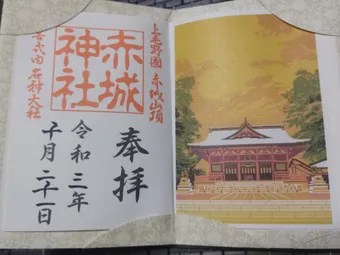 上毛野國 赤城山頂
赤城
神社
延喜式内 名神大社
奉拝
令和三年
十月二十一日